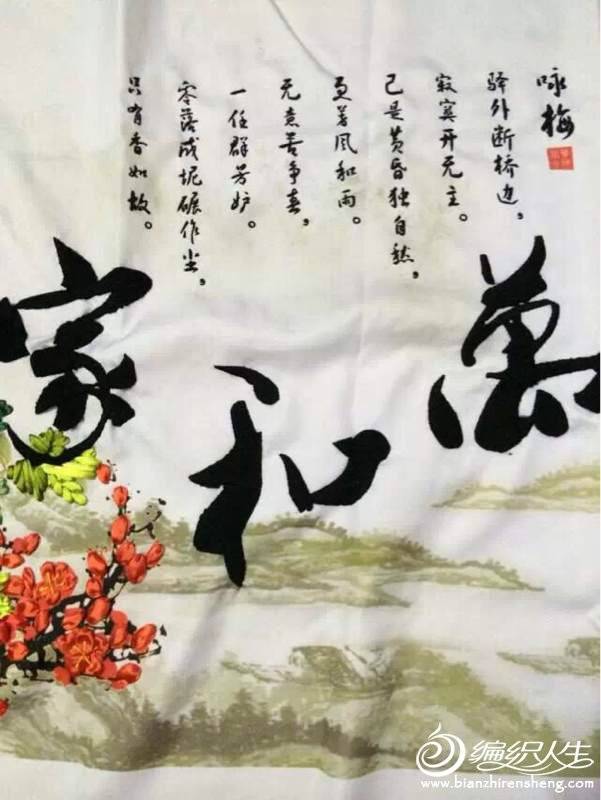 咏梅
驿外断桥边，
寂寞开无主。
已是黄昏独自愁，
更著风和雨。
无意苦争春，
一任群芳妒。
零落成泥碾作尘，
只有香如故。
家和萬
编织人生
www.bianzhirensheng.com